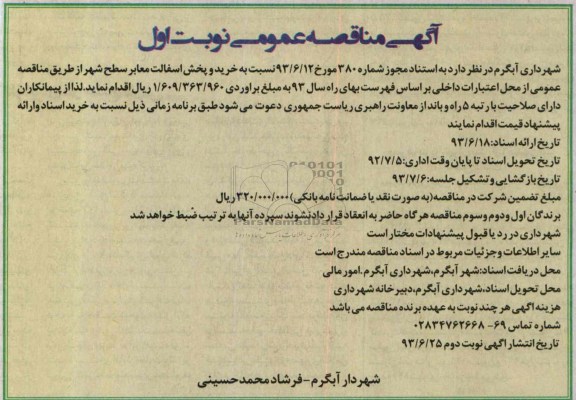 آگهی مناقصه عمومی نوبت اول
شهرداری آبگرم در نظر دارد به استناد مجوز شماره ۳۸۰ مورخ ۹۳/۶/۱۲ نسبت به خرید و پخش اسفالت معابر سطح شهر از طریق مناقصه
عمومی از محل اعتبارات داخلی بر اساس فهرست بهای راه سال ۹۳ به مبلغ براوردی ۱/۶۰۹/۳۶۳/۹۶۰ ریال اقدام نماید. لذا از پیمانکاران
دارای صلاحیت با رتبه ۵ راه و باند از معاونت راهبری ریاست جمهوری دعوت می شود طبق برنامه زمانی ذیل نسبت به خرید اسناد وارائه
پیشنهاد قیمت اقدام نمایند
تاریخ ارائه اسناد: ۹۳/۶/۱۸
تاریخ تحویل اسناد تا پایان وقت اداری: ۹۲/۷/۵
تاریخ بازگشایی و تشکیل جلسه: ۹۳/۷/۶
مبلغ تضمین شرکت در مناقصه (به صورت نقد یا ضمانت نامه بانکی) ۳۲۰/۰۰۰/۰۰۰ ریال
برندگان اول ودوم وسوم مناقصه هرگاه حاضر به انعقاد قرار دادنشوند سپرده آنها به ترتیب ضبط خواهد شد
شهرداری در رد یا قبول پیشنهادات مختار است
سایر اطلاعات وجزئیات مربوط در اسناد مناقصه مندرج است
محل دریافت اسناد: شهر آبگرم، شهرداری آبگرم. امور مالی
محل تحویل اسناد، شهرداری آبگرم، دبیرخانه شهرداری
هزینه اگهی هر چند نوبت به عهده برنده مناقصه می باشد
شماره تماس ۶۹- ۰۲۸۳۴۷۶۲۶۶۸
تاریخ انتشار اگهی نوبت دوم ۹۳/۶/۲۵
شهردار آبگرم - فرشاد محمدحسینی
ParsNamadData